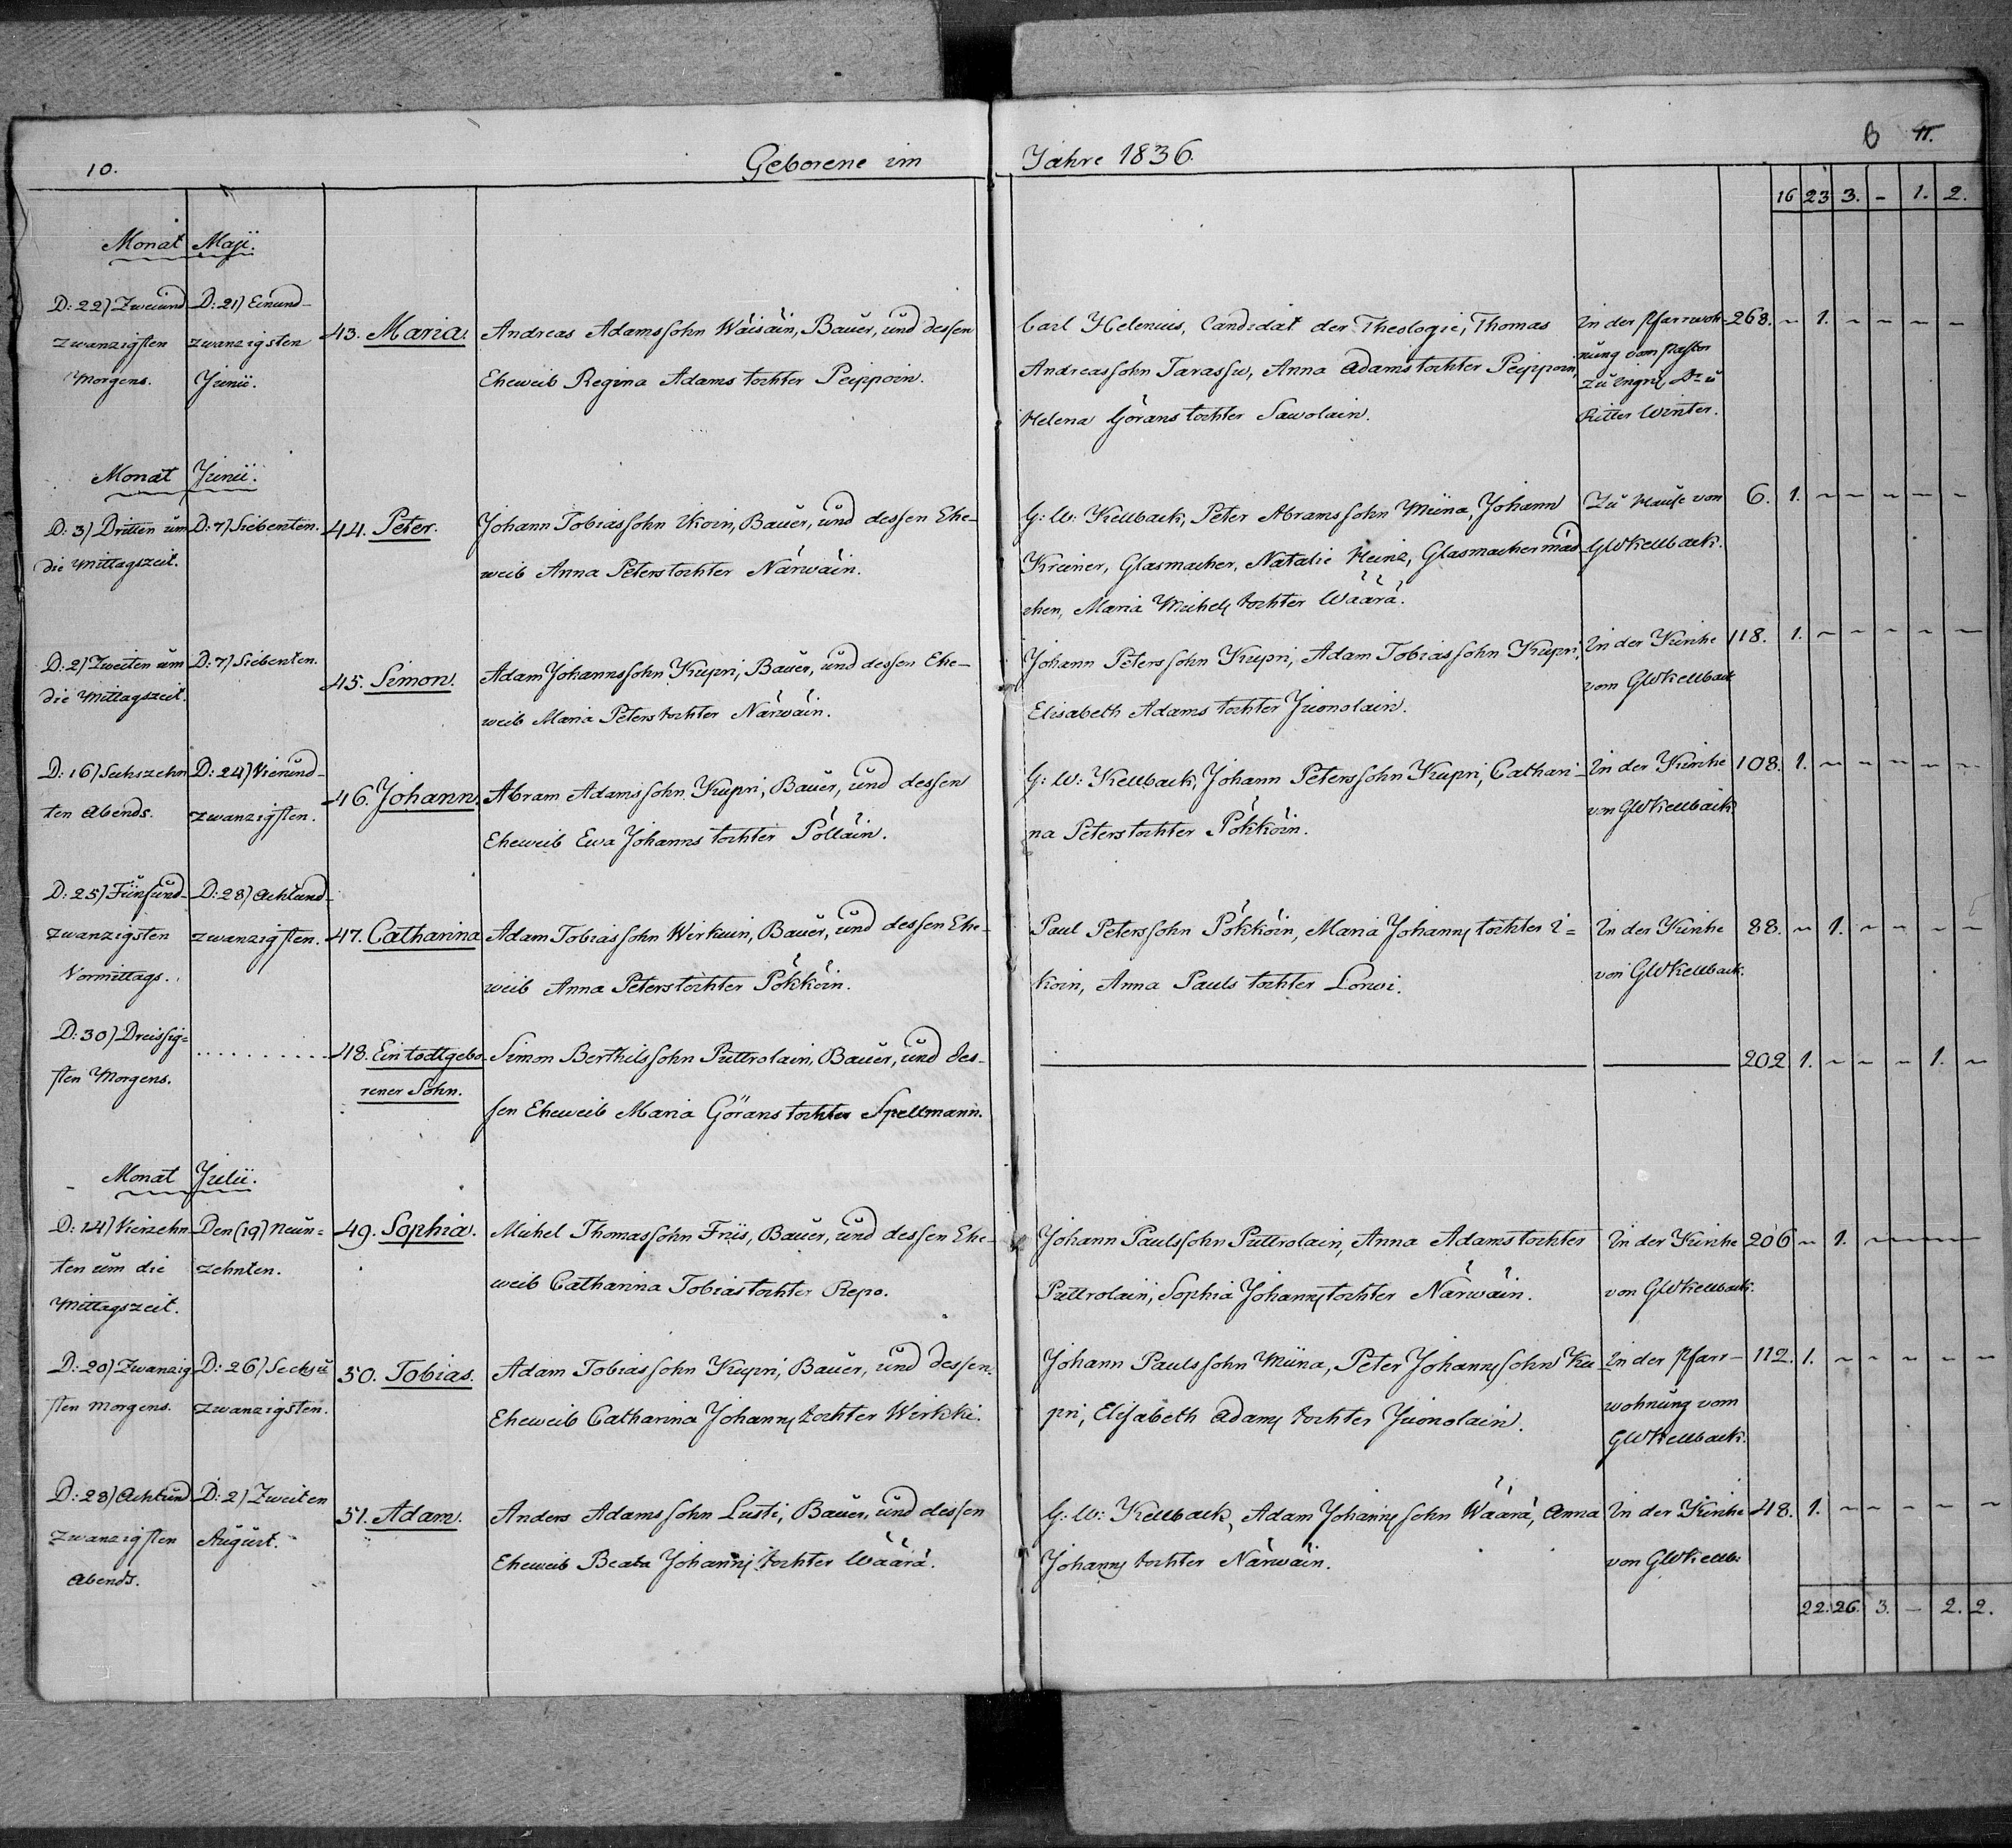 10.
Geborene im
Jahre 1836.
B 11.
16 23 3. - 1. 2.
Monat Maji.
D: 22) Zweiund
zwanzigsten
Morgens.
D: 21) Einund-
zwanzigsten
Junii.
43. Maria.
Andreas Adamssohn Wäisäin, Bauer, und dessen
Eheweib Regina Adams tochter Peippoin.
Carl Helenius, Candidat der Theologie, Thomas
Andreassohn Tarassu, Anna Adamstochter Peippoin,
Helena Görans tochter Sawolain.
In der Pfarrwoh-
nung vom Pastor
zu Ingris Dr u
Ritter Winter.
268. ~ 1. ~ ~ ~ ~
Monat Junii.
D: 3) Dritten um
die Mittagszeit.
D: 7) Siebenten.
44. Peter.
Johann Tobiassohn Ikoin, Bauer, und dessen Ehe-
weib Anna Peterstochter Närwäin.
G: W: Kellback, Peter Abramssohn Muina, Johann
Kreiner, Glasmacher, Natalie Heinz, Glasmachermäd-
chen, Maria Michels tochter Wäärä.
Zu Hause von
GWKellback.
6. 1. ~ ~ ~ ~ ~
D: 2) Zweiten um
die Mittagszeit.
D: 7) Siebenten.
45. Simon.
Adam Johannssohn Kupri, Bauer, und dessen Ehe-
weib Maria Peters tochter Närwäin.
Johann Peterssohn Kupri, Adam Tobiassohn Kupri,
Elisabeth Adams tochter Juonolain.
In der Kirche
vom GWKellback
118. 1. ~ ~ ~ ~ ~
D: 16) Sechszehn
ten Abends.
D: 24) Vierund-
zwanzigsten.
46. Johann.
Abram Adamssohn Kupri, Bauer, und dessen
Eheweib Ewa Johanns tochter Pölläin.
G: W: Kellback, Johann Peterssohn Kupri, Cathari-
na Peterstochter Pökköin.
In der Kirche
von GWKellback
108. 1. ~ ~ ~ ~ ~
D: 25) Fünfund-
zwanzigsten
Vormittags.
D: 28) Achtund-
zwanzigsten.
47. Catharina
Adam Tobiassohn Wirkuin, Bauer, und dessen Ehe-
weib Anna Peterstochter Pökköin.
Paul Peterssohn Pökköin, Maria Johanns tochter I=
koin, Anna Pauls tochter Lorwi.
In der Kirche
von GWKellback.
88. ~ 1. ~ ~ ~ ~
D: 30) Dreissig=
sten Morgens.
..........
48. Ein todtgebo-
rener Sohn.
Simon Berthilssohn Puttrolain, Bauer, und des-
sen Eheweib Maria Görans tochter Spellmann.
202 1. ~ ~ ~ 1. ~
Monat Julii.
D: 14) Vierzehn
ten um die
Mittagszeit.
Den (19) Neun=
zehnten.
49. Sophia.
Michel Thomassohn Friis, Bauer, und dessen Ehe-
weib Catharina Tobiastochter Repo.
Johann Paulssohn Puttrolain, Anna Adamstochter
Puttrolain, Sophia Johannstochter Närwäin.
In der Kirche
von GWKellback.
206 ~ 1. ~ ~ ~ ~
D: 20) Zwanzig
sten Morgens.
D: 26) Sechsu
zwanzigsten.
50. Tobias.
Adam Tobiassohn Kupri, Bauer, und dessen
Eheweib Catharina Johanns tochter Wirkki.
Johann Paulssohn Muina, Peter Johannssohn Ku
pri, Elisabeth Adams tochter Juonolain.
In der Pfarr-
wohnung vom
GWKellback.
112. 1. ~ ~ ~ ~ ~
D: 28) Achtund
zwanzigsten
Abends.
D: 2) Zweiten
August.
51. Adam.
Anders Adamssohn Lusti, Bauer, und dessen
Eheweib Beata Johanns tochter Wäärä.
G: W: Kellback, Adam Johannssohn Wäärä, Anna
Johanns tochter Närwäin.
In der Kirche
von GWKellb:
48. 1. ~ ~ ~ ~ ~
22. 26. 3. - 2. 2.